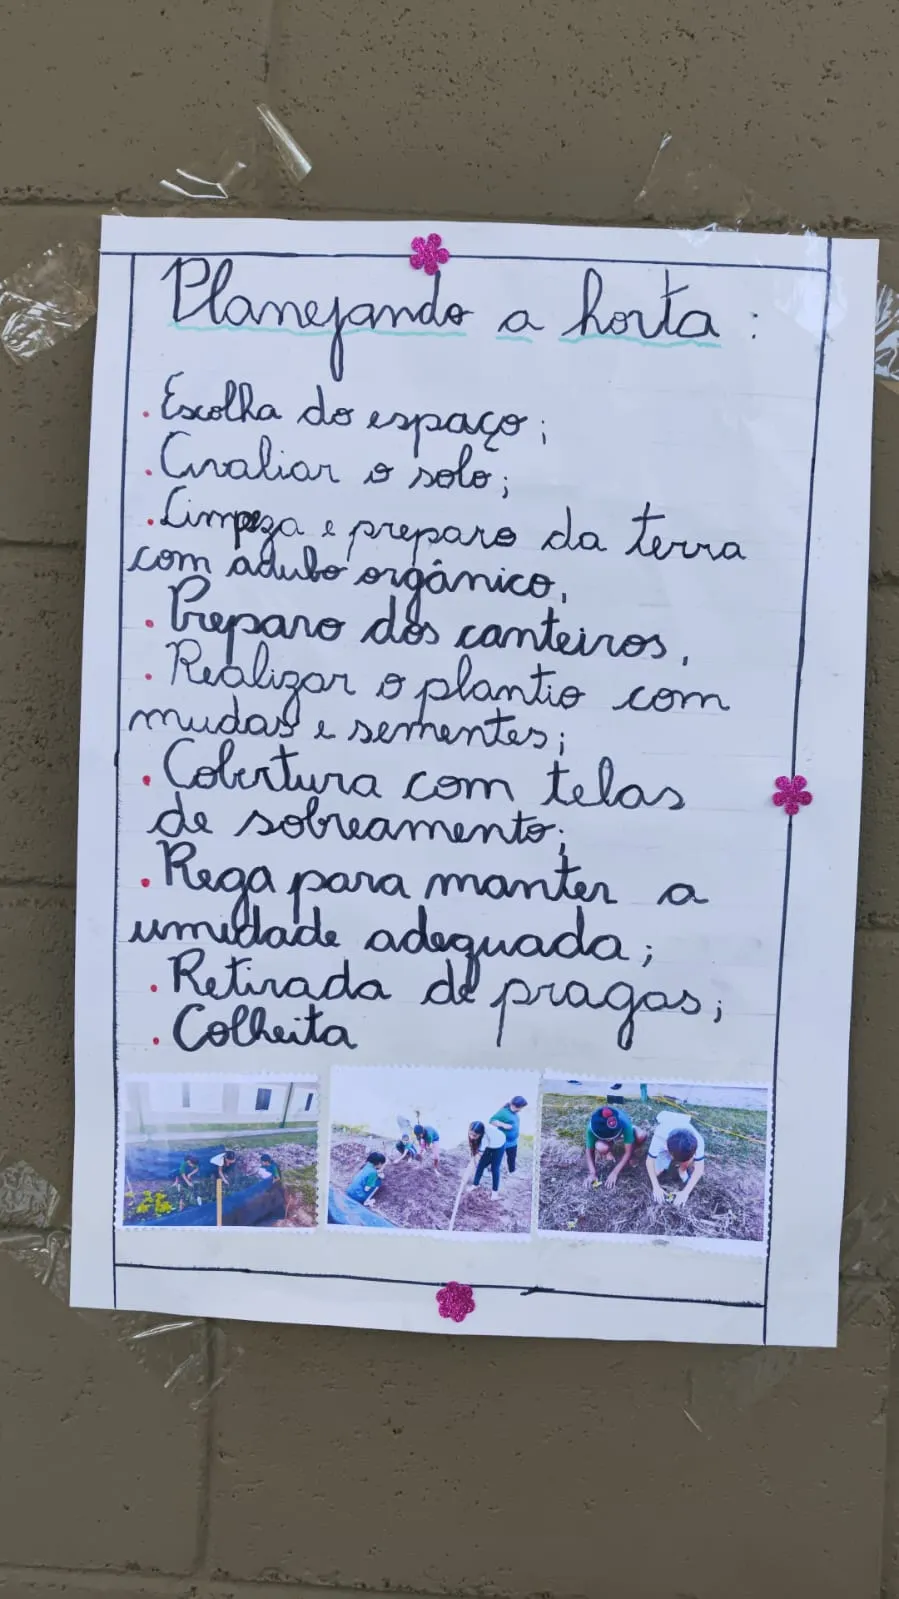 Planejando a horta:
. Escolha do espaço;
. Avaliar o solo;
. Limpeza e preparo da terra
com adubo orgânico,
. Preparo dos canteiros,
. Realizar o plantio com
mudas e sementes;
. Cobertura com telas
de sobreamento;
. Rega para manter a
umidade adequada;
. Retirada de pragas;
. Colheita